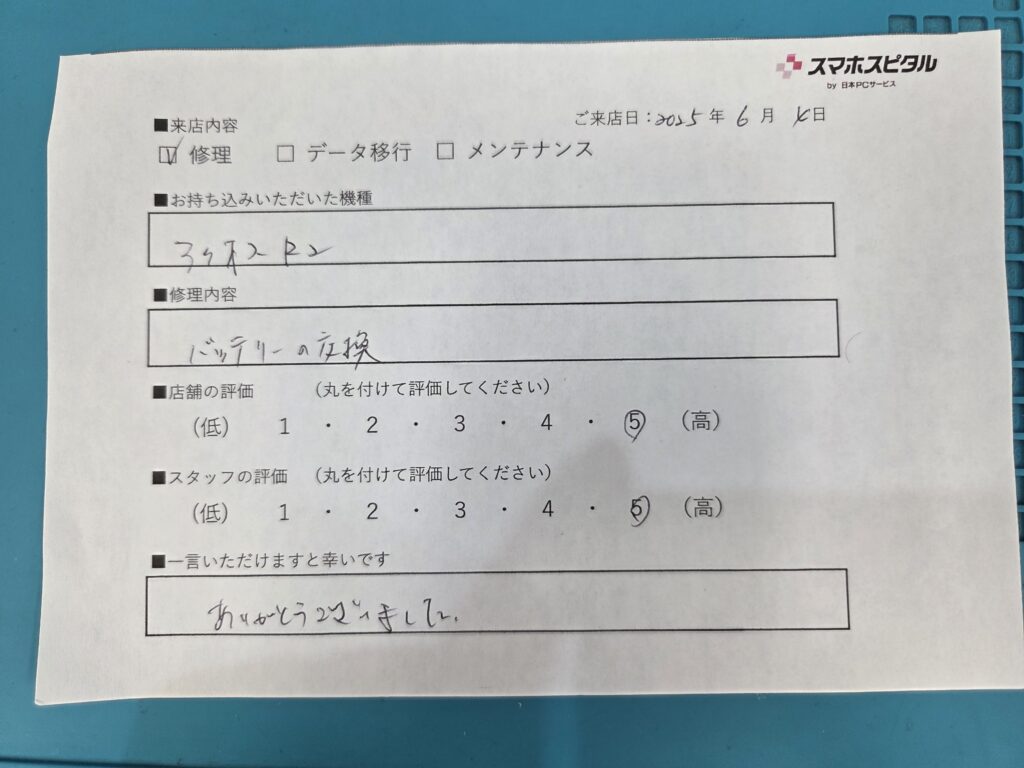 スマホスピタル
by 日本PCサービス
ご来店日：2025年 6月 日
■来店内容
☑ 修理 □ データ移行 □ メンテナンス
■お持ち込みいただいた機種
■修理内容
バッテリーの交換
■店舗の評価 （丸を付けて評価してください）
（低） 1 ・ 2 ・ 3 ・ 4 ・ 5 （高）
■スタッフの評価 （丸を付けて評価してください）
（低） 1 ・ 2 ・ 3 ・ 4 ・ 5 （高）
■一言いただけますと幸いです
ありがとうございました。